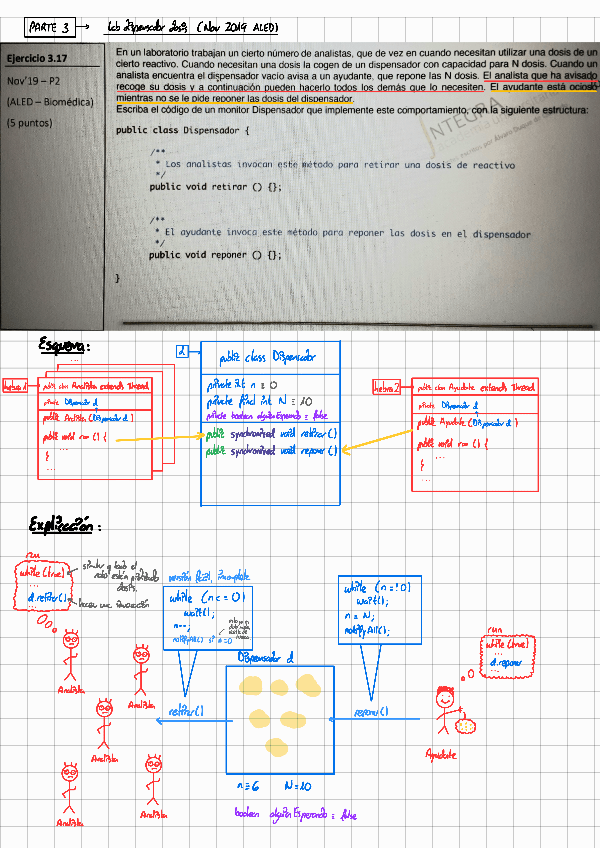 PARTE 3 → Lab dispensador dosis (Nov 2019 ALED)
Ejercicio 3.17
Nov'19 – P2
(ALED – Biomédica)
(5 puntos)
En un laboratorio trabajan un cierto número de analistas, que de vez en cuando necesitan utilizar una dosis de un
cierto reactivo. Cuando necesitan una dosis la cogen de un dispensador con capacidad para N dosis. Cuando un
analista encuentra el dispensador vacío avisa a un ayudante, que repone las N dosis. El analista que ha avisado
recoge su dosis y a continuación pueden hacerlo todos los demás que lo necesiten. El ayudante está ocioso
mientras no se le pide reponer las dosis del dispensador.
Escriba el código de un monitor Dispensador que implemente este comportamiento, con la siguiente estructura:
public class Dispensador {
/**
* Los analistas invocan este método para retirar una dosis de reactivo
*/
public void retirar () {};
/**
* El ayudante invoca este método para reponer las dosis en el dispensador
*/
public void reponer () {};
}
INTEGRA
Esquema:
...
hebra 1
public class Analista extends Thread
private Dispensador d
public Analista (Dispensador d)
public void run () {
...
}
...
d
public class Dispensador
private int n = 0
private final int N = 10
private boolean alguienEsperando = false
public synchronized void retirar ()
public synchronized void reponer ()
hebra 2
public class Ayudante extends Thread
private Dispensador d
public Ayudante (Dispensador d)
public void run () {
...
}
...
Explicación:
run
while (true)
...
d.retirar()
...
hacen una invocación
versión fácil, incompleta
while (n <= 0)
wait();
n--;
notifyAll() si n=0
while (n != 0)
wait();
n = N;
notifyAll();
run
while (true)
...
d.reponer
...
Dispensador d
retirar()
reponer()
Analista
Analista
Analista
Analista
Analista
Ayudante
n = 6 N = 10
boolean alguienEsperando = false